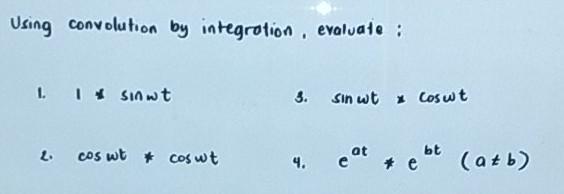 Using convolution by integration, evaluate :
1. 1 * sin wt
3. sin wt * cos wt
2. cos wt * cos wt
4. e^{at} * e^{bt} (a ≠ b)